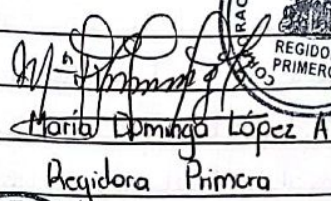 REGIDO
PRIMERO
María Dominga López A
Regidora Primera